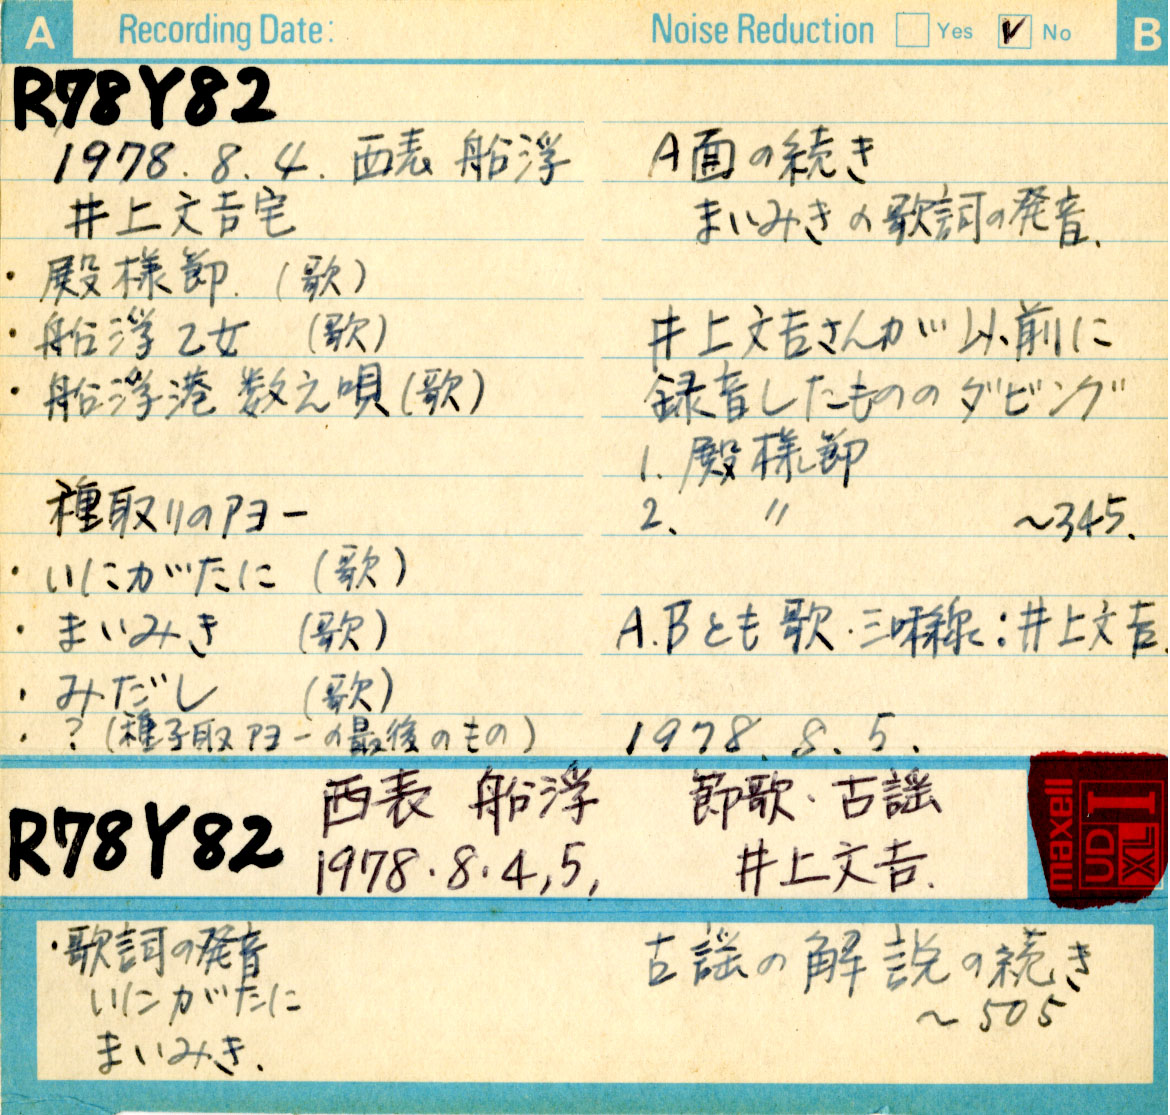 A Recording Date:
R78Y82
1978.8.4. 西表 船浮
井上文吉宅
・殿様節.（歌）
・船浮乙女（歌）
・船浮港 数え唄（歌）
種取りのアヨー
・いにがたに（歌）
・まいみき（歌）
・みだし（歌）
・？（種子取アヨーの最後のもの）
Noise Reduction Yes ✓ No B
A面の続き
まいみきの歌詞の発音.
井上文吉さんが以前に
録音したもののダビング
1. 殿様節
2. 〃 〜345.
A.Bとも歌・三味線：井上文吉.
1978.8.5.
R78Y82
西表 船浮 節歌・古謡
1978.8.4,5, 井上文吉.
maxell
UD XL I
・歌詞の発音
いにがたに
まいみき.
古謡の解説の続き
〜505